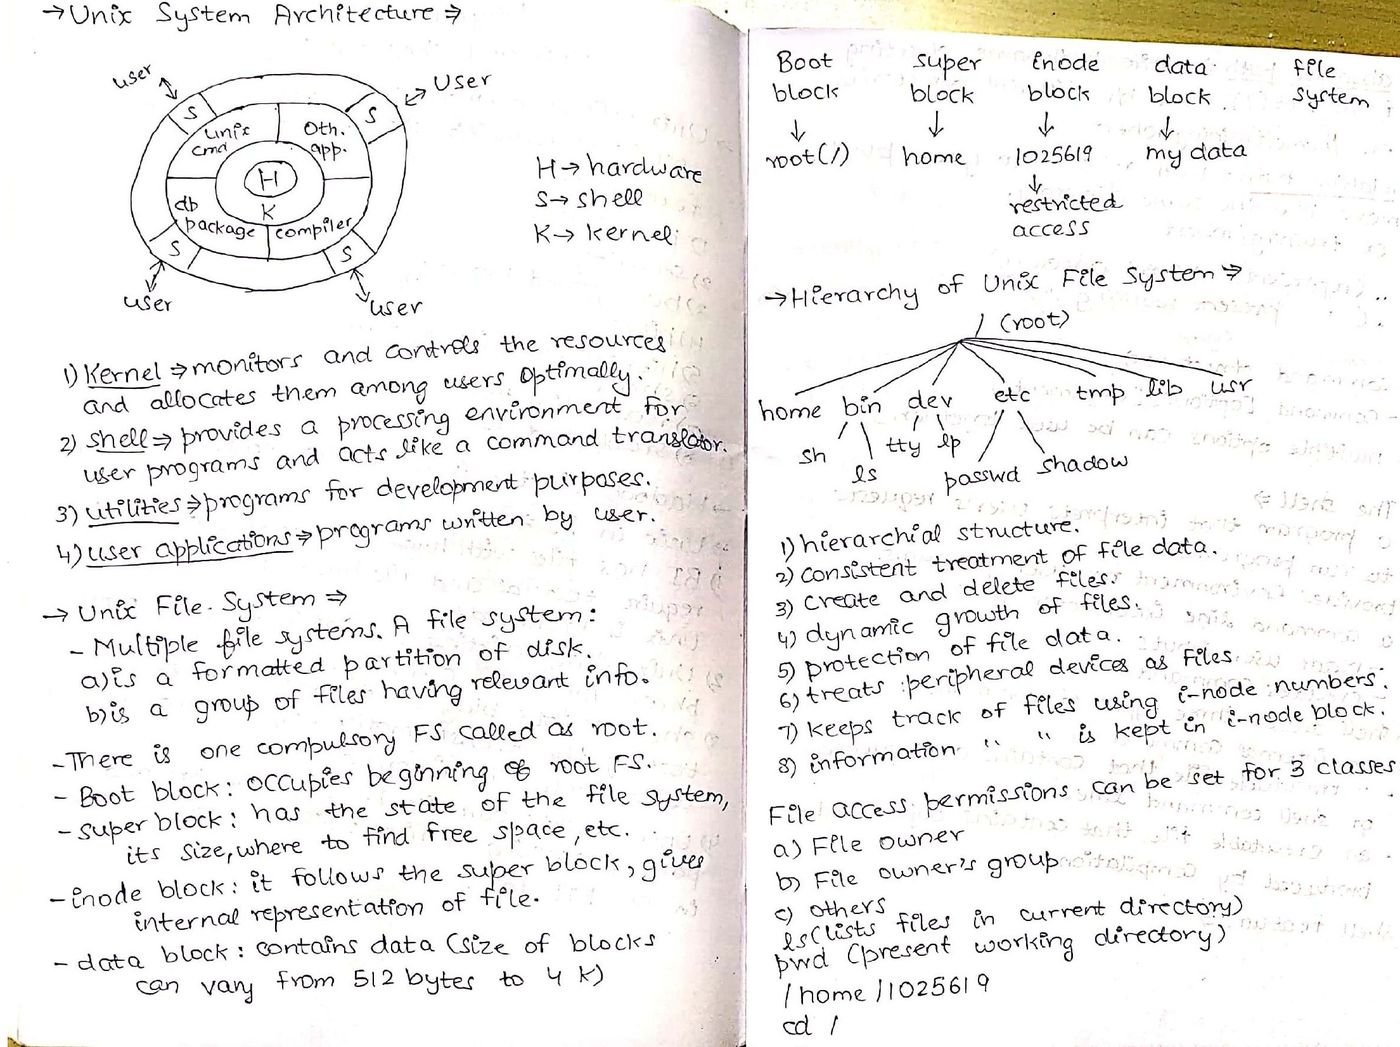 →Unix System Architecture ⇒
user
User
S
S
Unix
cmd
Oth.
app.
H
K
db
package
compiler
S
S
user
user
H→ hardware
S→ shell
K→ kernel
1) Kernel ⇒ monitors and controls the resources
and allocates them among users optimally.
2) shell ⇒ provides a processing environment for
user programs and acts like a command translator.
3) utilities ⇒ programs for development purposes.
4) user applications ⇒ programs written by user.
→ Unix File System ⇒
- Multiple file systems. A file system:
a) is a formatted partition of disk.
b) is a group of files having relevant info.
- There is one compulsory FS called as root.
- Boot block: occupies beginning of root FS.
- super block: has the state of the file system,
its size, where to find free space, etc.
- inode block: it follows the super block, gives
internal representation of file.
- data block: contains data (size of blocks
can vary from 512 bytes to 4 K)
Boot super inode data file
block block block block system
↓ ↓ ↓ ↓
root(/) home 1025619 my data
↓
restricted
access
→Hierarchy of Unix File System ⇒
/ (root)
home bin dev etc tmp lib usr
sh ls tty lp passwd shadow
1) hierarchial structure.
2) consistent treatment of file data.
3) create and delete files.
4) dynamic growth of files.
5) protection of file data.
6) treats peripheral devices as files.
7) keeps track of files using i-node numbers.
8) information " " is kept in i-node block.
File access permissions can be set for 3 classes
a) File owner
b) File owner's group
c) others
ls (lists files in current directory)
pwd (present working directory)
/home/1025619
cd /